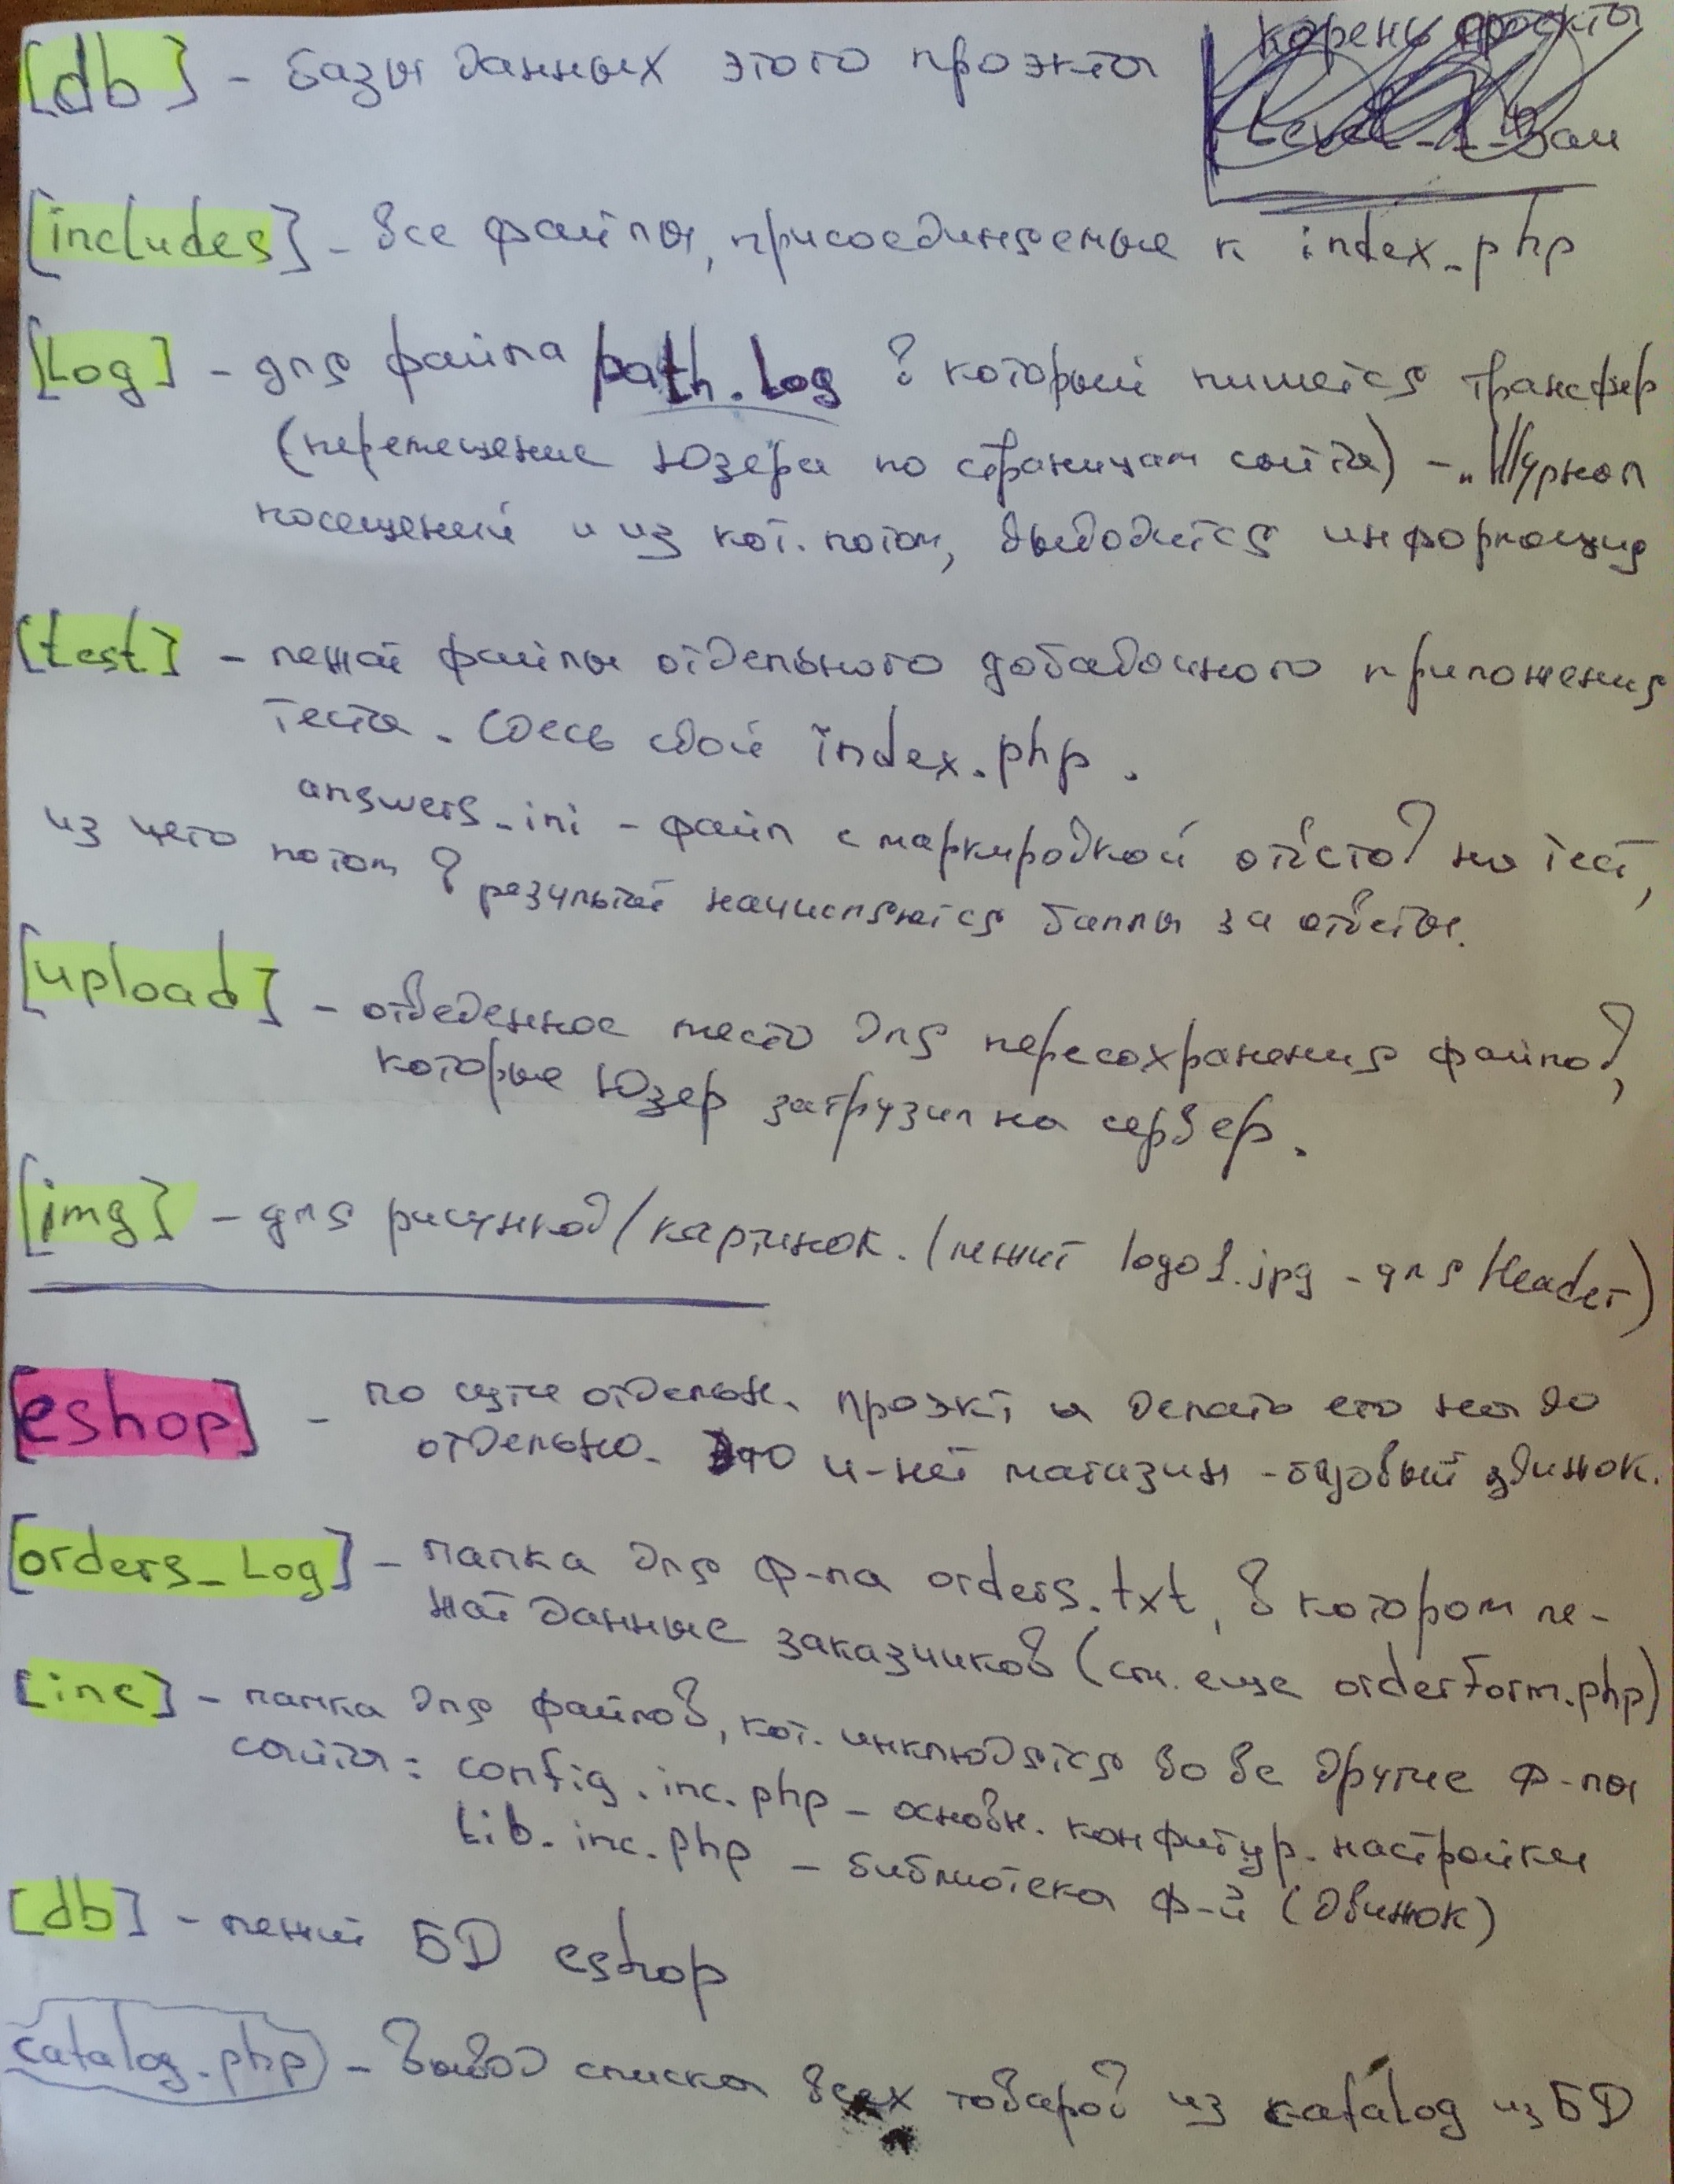 [db] - базы данных этого проэкта
корень проекта
[includes] - все файлы, присоединяемые к index.php
[Log] - для файла path.log в который пишется трансфер
(перемещение Юзера по страницам сайта) - "Журнал
посещений и из кот. потом, выводится информация
[test] - лежат файлы отдельного добавочного приложения
теста. Здесь свой index.php.
answers.ini - файл с маркировкой ответов на тест,
из чего потом в результат начисляются баллы за ответы.
[upload] - отведенное место для пересохранения файлов,
которые Юзер загрузил на сервер.
[img] - для рисунков/картинок. (лежит logo1.jpg - для Header)
[eshop] - по сути отдельн. проэкт и делать его надо
отдельно. Это и-нет магазин - базовый движок.
[orders_Log] - папка для ф-ла orders.txt, в котором ле-
жат данные заказчиков (см. еще orderform.php)
[inc] - папка для файлов, кот. инклюдятся во все другие ф-лы
сайта: config.inc.php - основн. конфигур. настройки
Lib.inc.php - библиотека ф-й (движок)
[db] - лежит БД eshop
catalog.php - вывод списка всех товаров из catalog из БД